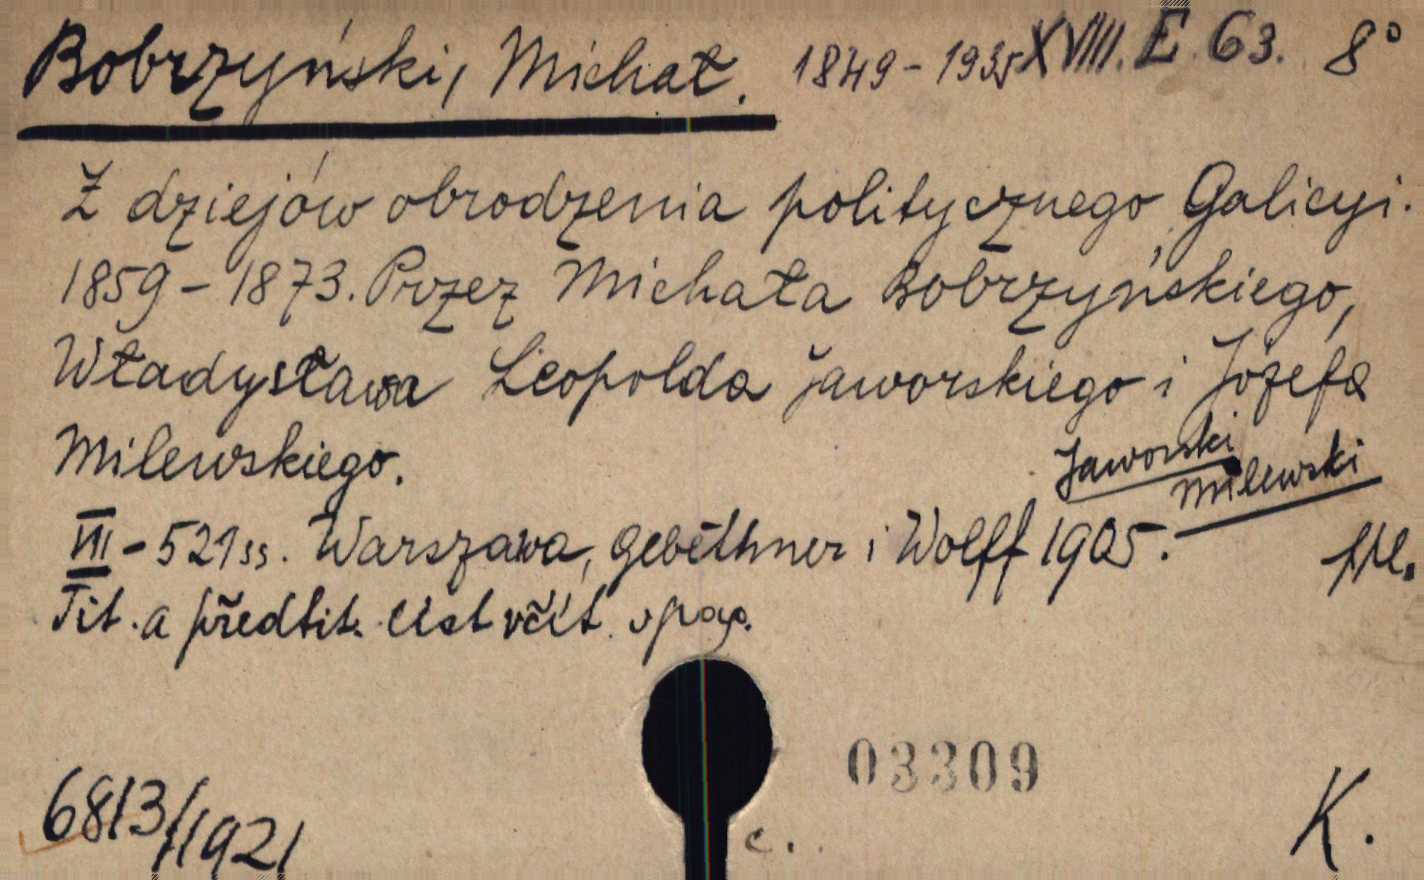 Bobrzyński, Michał. 1849-1935 XVIII. E. 63. 8°
Z dziejów obrodzenia politycznego Galicyi.
1859-1873. Przez Michała Bobrzyńskiego,
Władysława Leopolda Jaworskiego i Józefa
Milewskiego.
Jaworski
Milewski
VII-521 ss. Warszawa, Gebethner i Wolff 1905.
Tit. a předtit. list včít. v pag.
03309
6813/1921
c.
K.